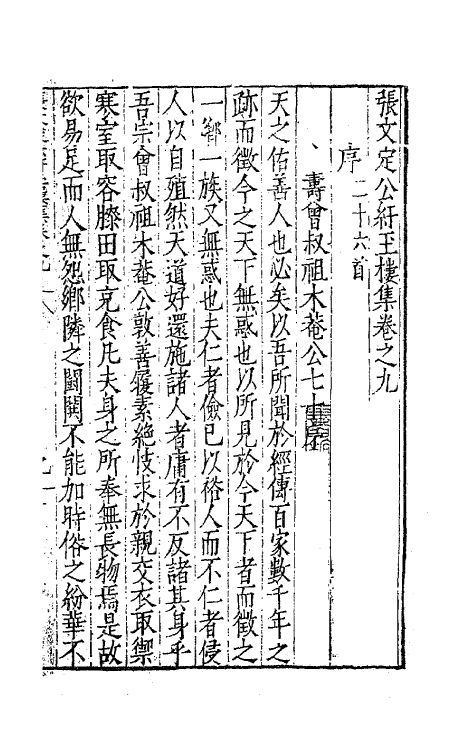 張文定公紆玉樓集卷之九
序二十六首
壽曾叔祖木菴公七十壽序
天之佑善人也必矣以吾所聞於經傳百家數千年之
跡而徵今之天下無惑也以所見於今天下者而徵之
一鄉一族又無惑也夫仁者儉已以裕人而不仁者侵
人以自殖然天道好還施諸人者庸有不反諸其身乎
吾宗曾叔祖木菴公敦善履素絶忮求於親交衣取禦
寒室取容膝田取充食凡夫身之所奉無長物焉是故
欲易足而人無怨鄉隣之鬬鬨不能加時俗之紛華不